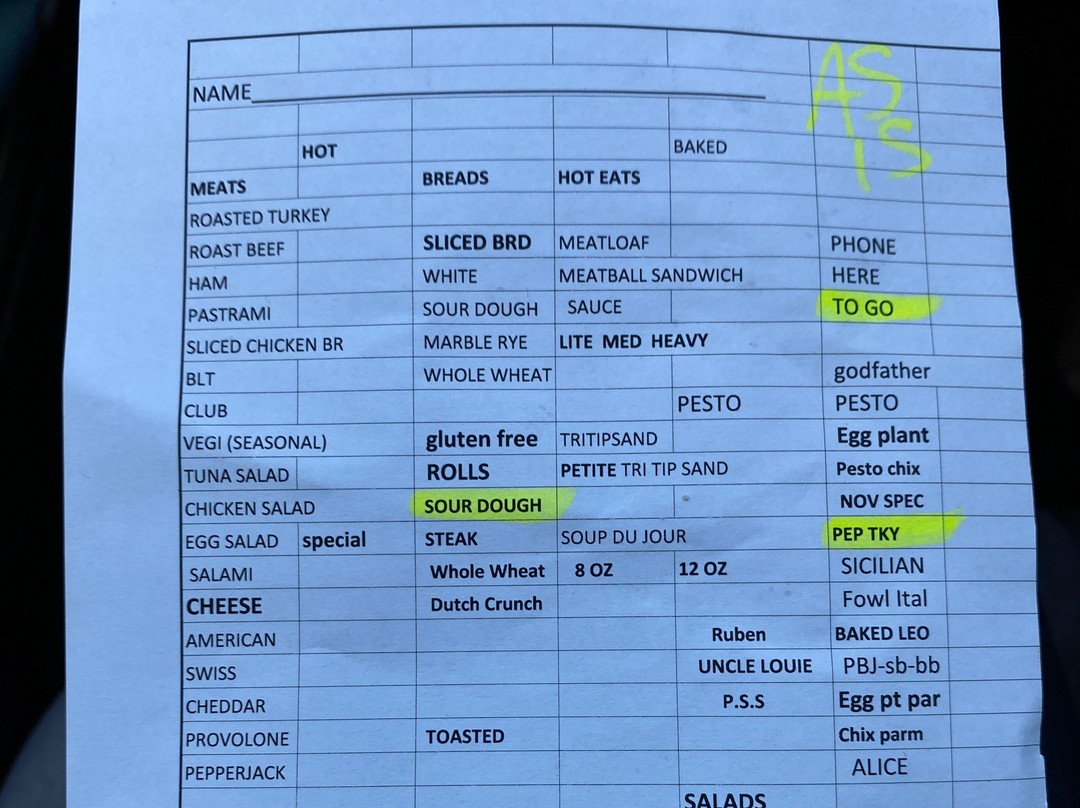 AS
IS
NAME
HOT BAKED
MEATS BREADS HOT EATS
ROASTED TURKEY
ROAST BEEF SLICED BRD MEATLOAF PHONE
HAM WHITE MEATBALL SANDWICH HERE
PASTRAMI SOUR DOUGH SAUCE TO GO
SLICED CHICKEN BR MARBLE RYE LITE MED HEAVY
BLT WHOLE WHEAT godfather
CLUB PESTO PESTO
VEGI (SEASONAL) gluten free TRITIPSAND Egg plant
TUNA SALAD ROLLS PETITE TRI TIP SAND Pesto chix
CHICKEN SALAD SOUR DOUGH NOV SPEC
EGG SALAD special STEAK SOUP DU JOUR PEP TKY
SALAMI Whole Wheat 8 OZ 12 OZ SICILIAN
CHEESE Dutch Crunch Fowl Ital
AMERICAN Ruben BAKED LEO
SWISS UNCLE LOUIE PBJ-sb-bb
CHEDDAR P.S.S Egg pt par
PROVOLONE TOASTED Chix parm
PEPPERJACK ALICE
SALADS